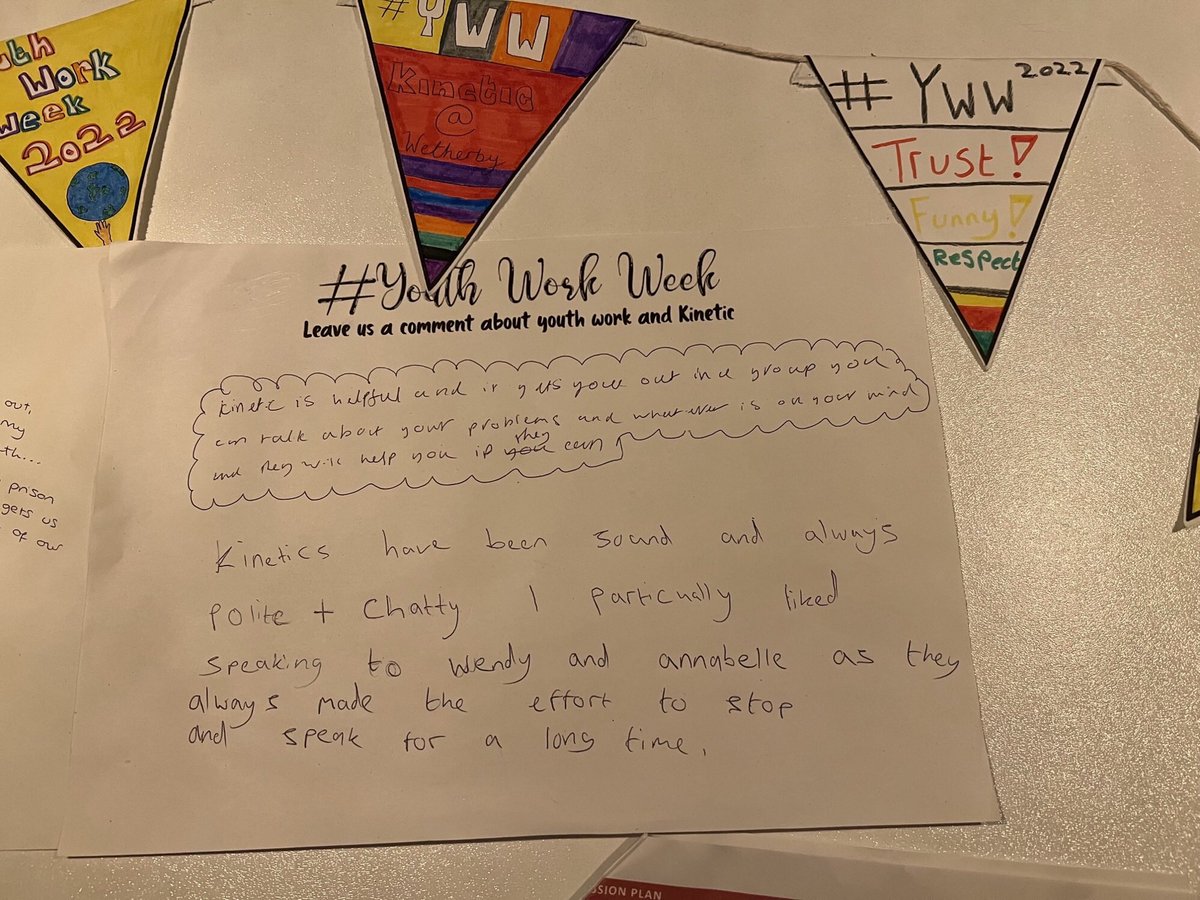 uth
Work
week
2022
#YWW
Kinetic
@
Wetherby
# YWW 2022
Trust!
Funny!
ReSpect
#Youth Work Week
Leave us a comment about youth work and Kinetic
Kinetic is helpful and it gets youe out in a group you
can talk about your problems and what ever is on your mind
and they will help you if they can
Kinetics have been sound and always
polite + chatty I particually liked
speaking to wendy and annabelle as they
always made the effort to stop
and speak for a long time.
out,
my
th...
prison
gets us
of our
SSION PLAN